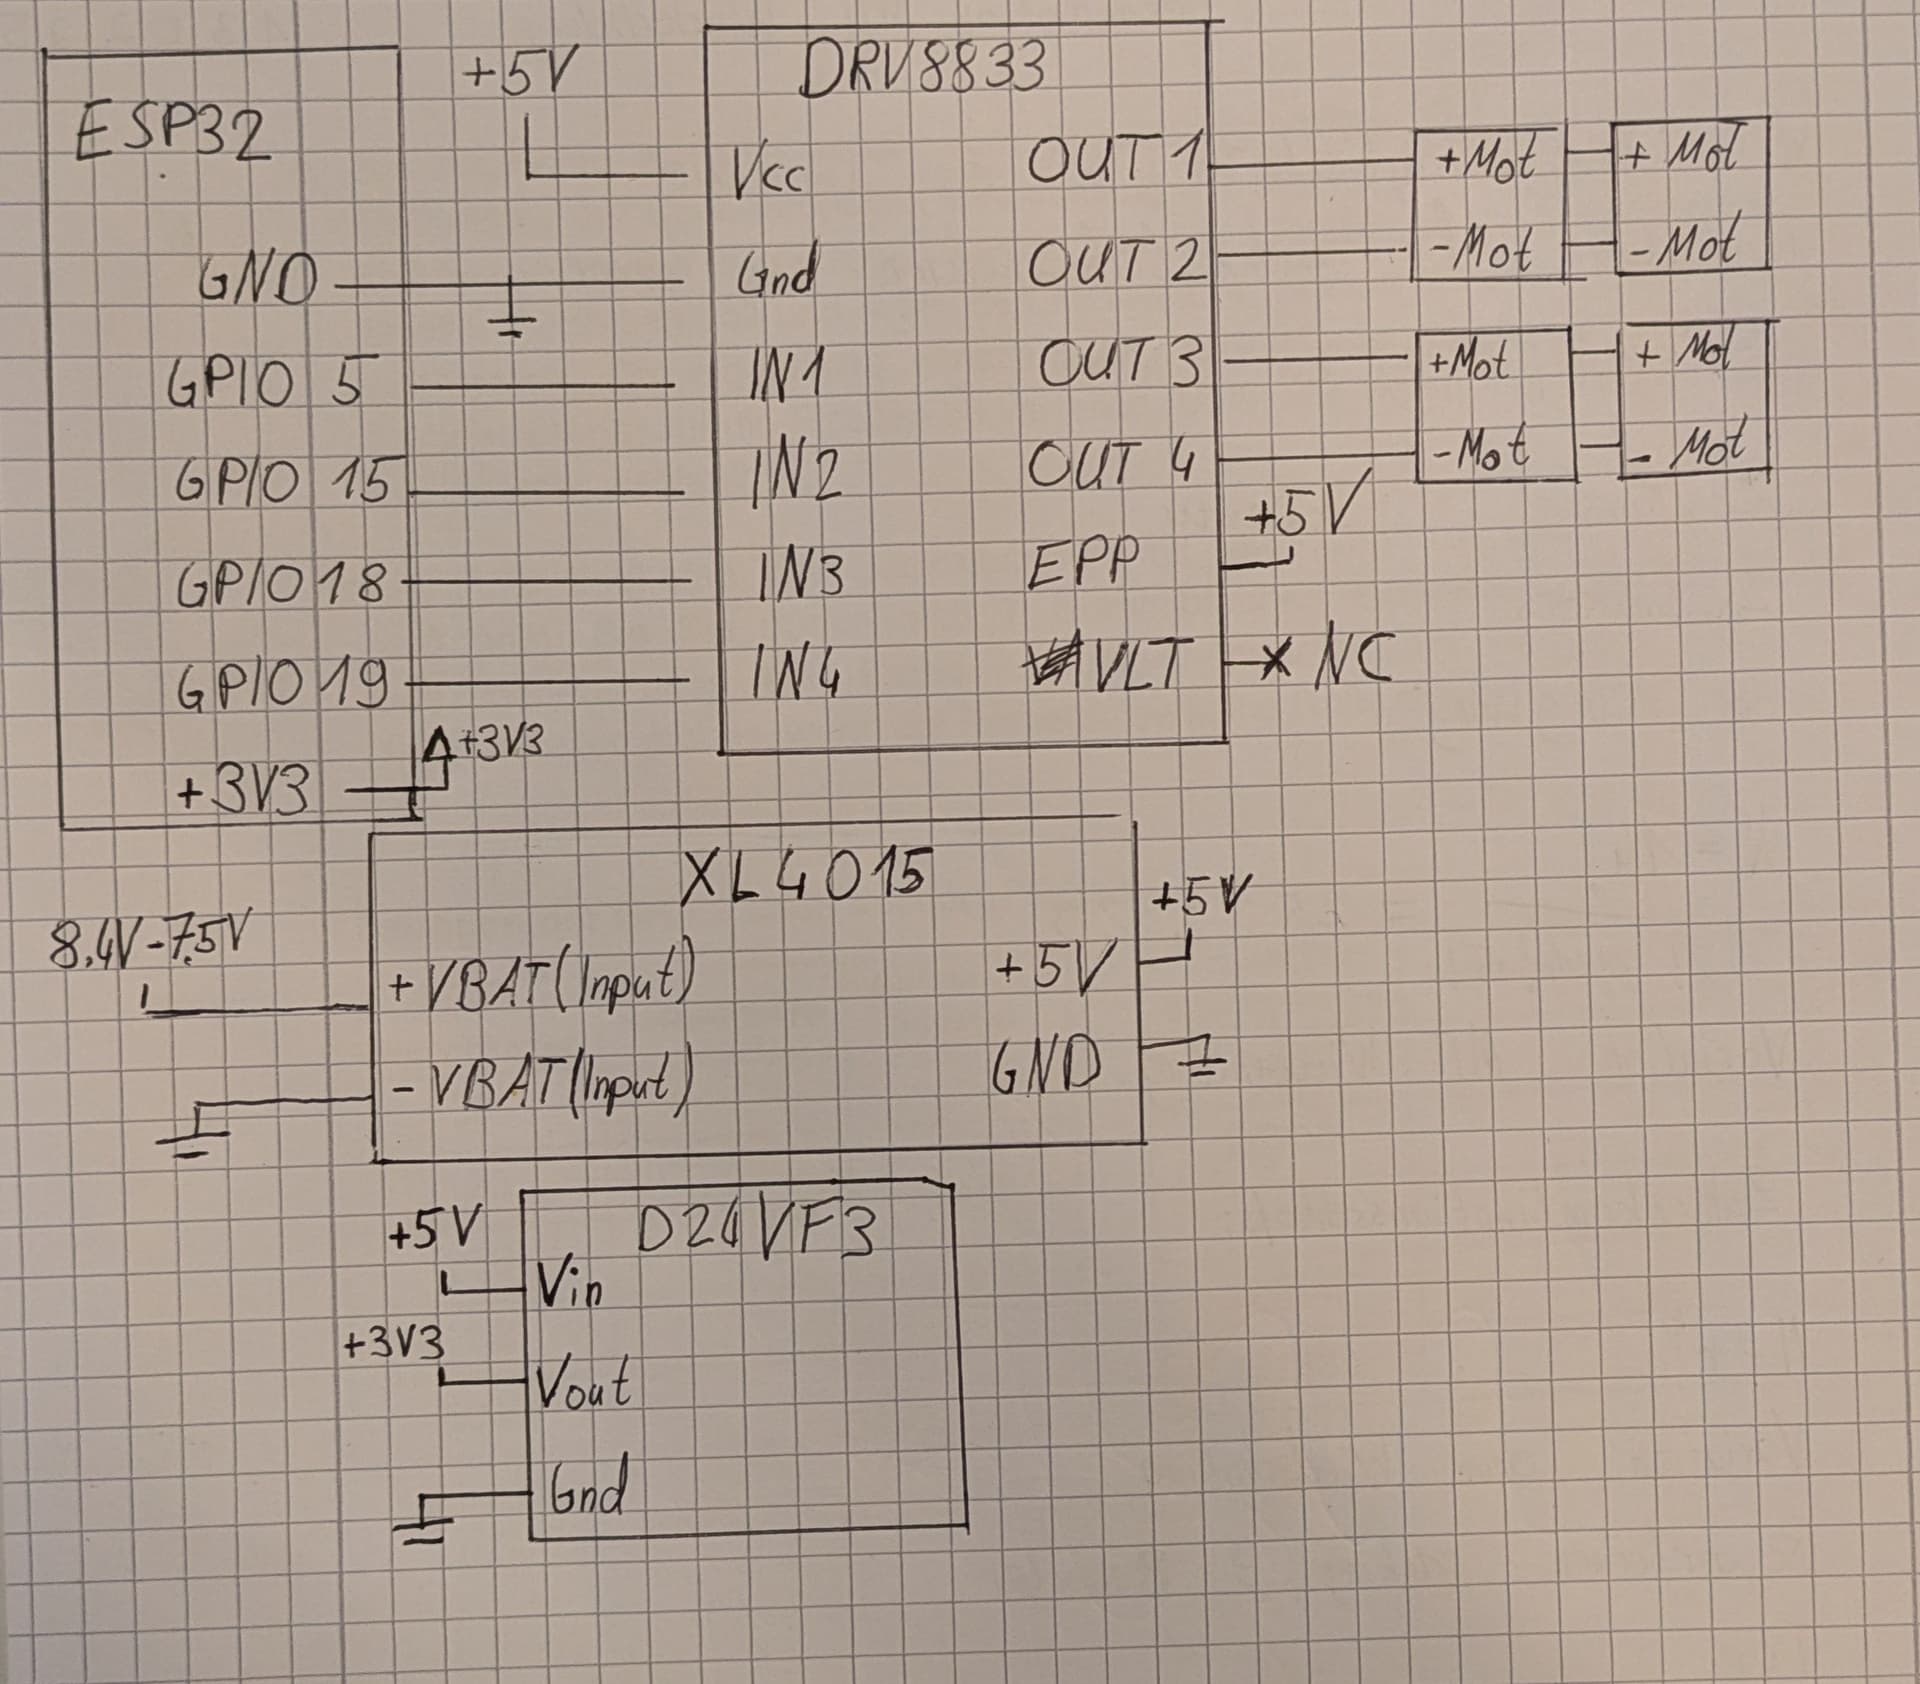 ESP32
GND
GPIO 5
GPIO 15
GPIO 18
GPIO 19
+3V3
+3V3
+5V
DRV8833
Vcc
Gnd
IN1
IN2
IN3
IN4
OUT 1
OUT 2
OUT 3
OUT 4
EPP
VLT
+5V
X NC
+Mot
-Mot
+ Mot
- Mot
+Mot
-Mot
+ Mot
- Mot
XL4015
8.4V-7.5V
+VBAT(Input)
- VBAT(Input)
+5V
GND
+5V
D24VF3
+5V
Vin
+3V3
Vout
Gnd